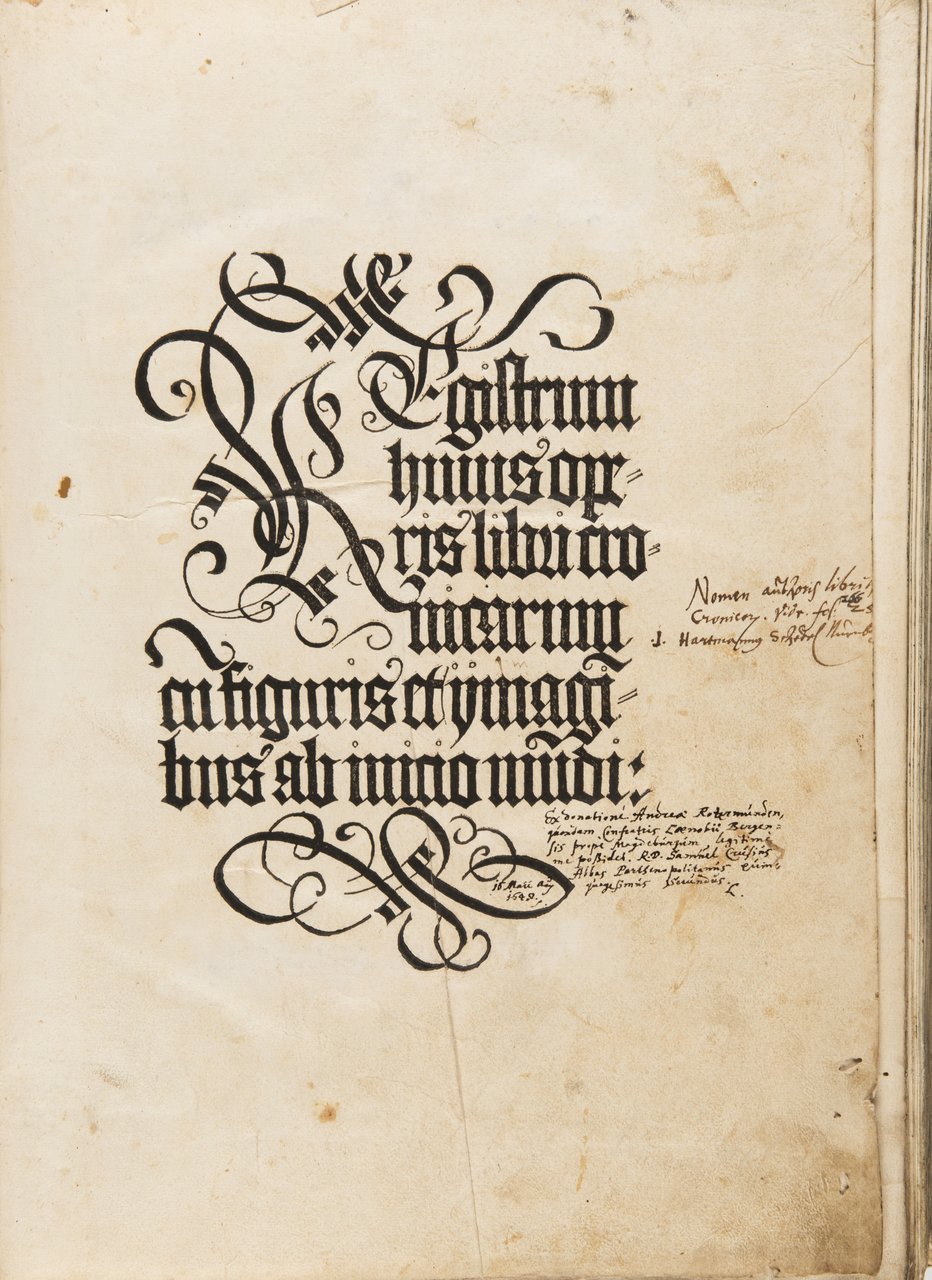 REgistrum
huius ope-
ris libri cro-
nicarum
cū figuris et ymagī-
bus ab inicio mūdi:
Nomen authoris libri
Cronicor. Vide. fol.
.1. Hartmannus Schedel
Ex donatione Andreæ Rotermunden,
quondam Confratris Cœnobii Bergen-
sis prope Magdeburgum legitime
me poßidet. R.D. Samuel
Abbas Parthenopolitanus quin-
quagesimus Secundus.
16
1648.